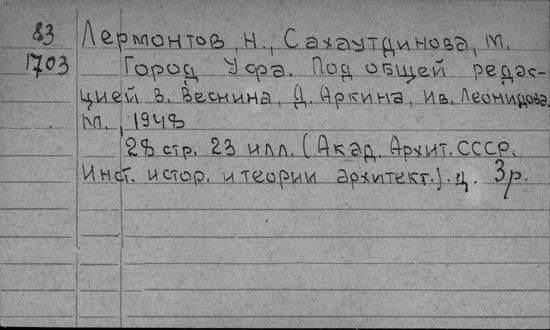 83 Лермонтов, Н., Сахаутдинова, М.
1703 Город Уфа. Под общей редак-
цией В. Веснина, Д. Аркина, Ив. Леонидова.
М., 1948
28 стр. 23 илл. (Акад. Архит. СССР.
Инст. истор. и теории архитект.). ц. 3р.